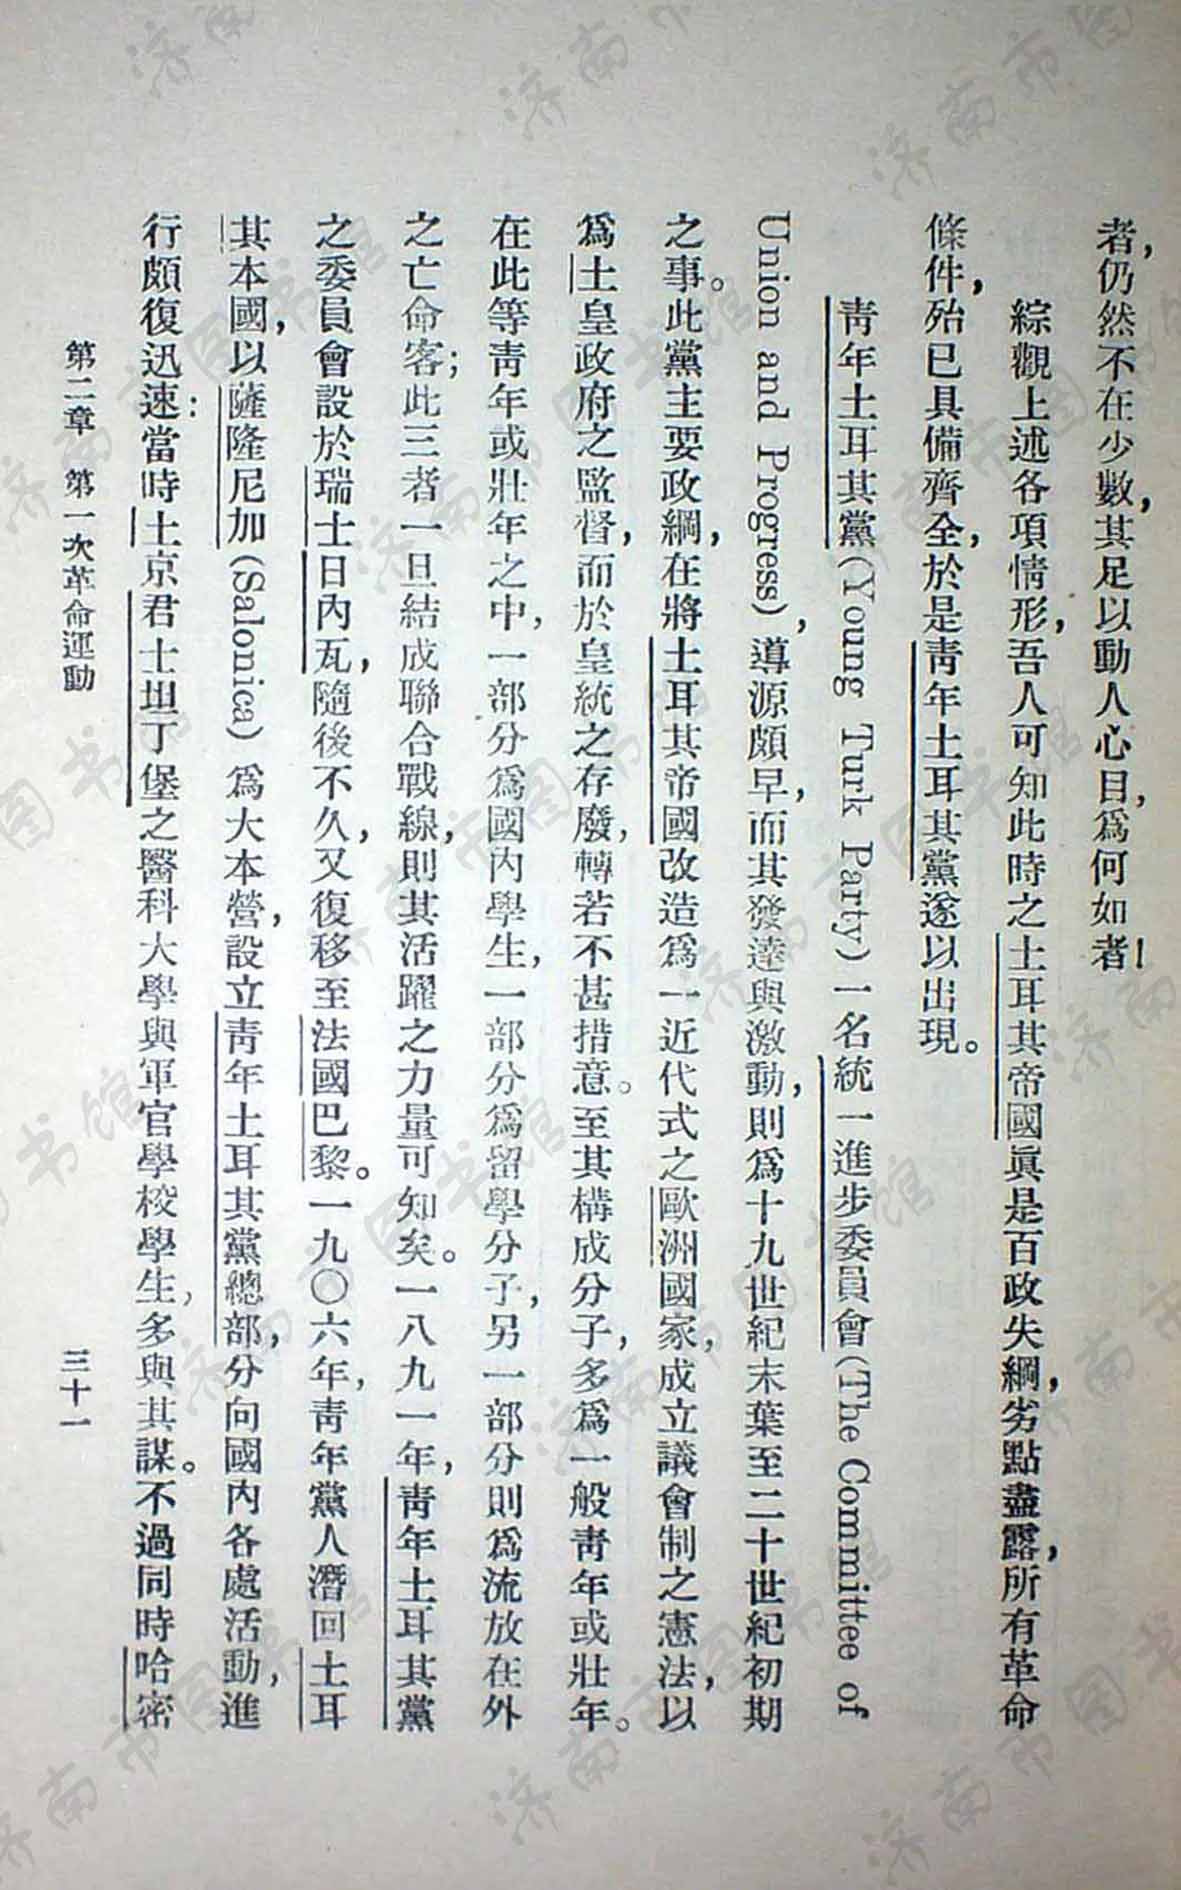 者,仍然不在少數,其足以動人心目,爲何如者!
綜觀上述各項情形,吾人可知此時之土耳其帝國眞是百政失綱,劣點盡露,所有革命
條件,殆已具備齊全,於是靑年土耳其黨遂以出現。
靑年土耳其黨(Young Turk Party)一名統一進步委員會(The Committee of
Union and Progress),導源頗早,而其發達與激動,則爲十九世紀末葉至二十世紀初期
之事。此黨主要政綱,在將土耳其帝國改造爲一近代式之歐洲國家,成立議會制之憲法,以
爲土皇政府之監督,而於皇統之存廢,轉若不甚措意。至其構成分子,多爲一般靑年或壯年。
在此等靑年或壯年之中,一部分爲國內學生,一部分爲留學分子,另一部分則爲流放在外
之亡命客;此三者一旦結成聯合戰線,則其活躍之力量可知矣。一八九一年,靑年土耳其黨
之委員會設於瑞士日內瓦,隨後不久,又復移至法國巴黎。一九〇六年,靑年黨人潛回土耳
其本國,以薩隆尼加(Salonica)爲大本營,設立靑年土耳其黨總部,分向國內各處活動,進
行頗復迅速:當時土京君士坦丁堡之醫科大學與軍官學校學生,多與其謀。不過同時哈密
第二章 第一次革命運動
三十一
济南市图书馆